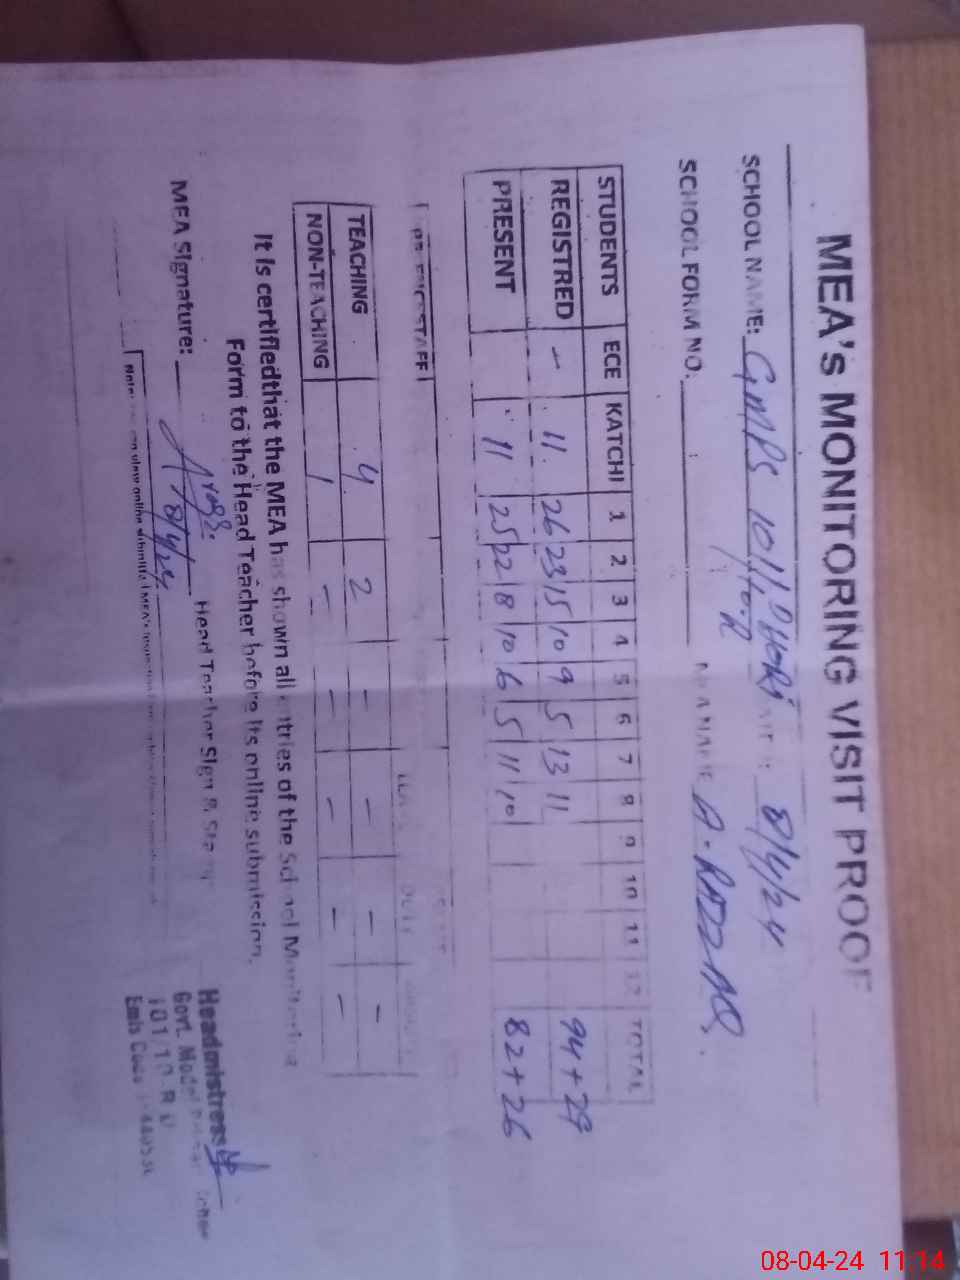 MEA's MONITORING VISIT PROOF
SCHOOL NAME: GMPS 101/10.R 8/4/24
SCHOOL FORM NO. A. RAZZAQ.
STUDENTS ECE KATCHI 1 2 3 4 5 6 7 8 9 10 11 12 TOTAL
REGISTRED - 11 26 23 15 10 9 5 13 11 94+29
PRESENT 11 25 22 8 10 6 5 11 10 82+26
STAFF
TEACHING 4 2 - - - -
NON-TEACHING 1 - - - - -
It is certifiedthat the MEA has shown all entries of the School Monitoring
Form to the Head Teacher before its online submission.
MEA Signature: 8/4/24 Head Teacher Sign & Stamp
Headmistress
Govt. Model
101/10-R
Emis Code
08-04-24 11:14